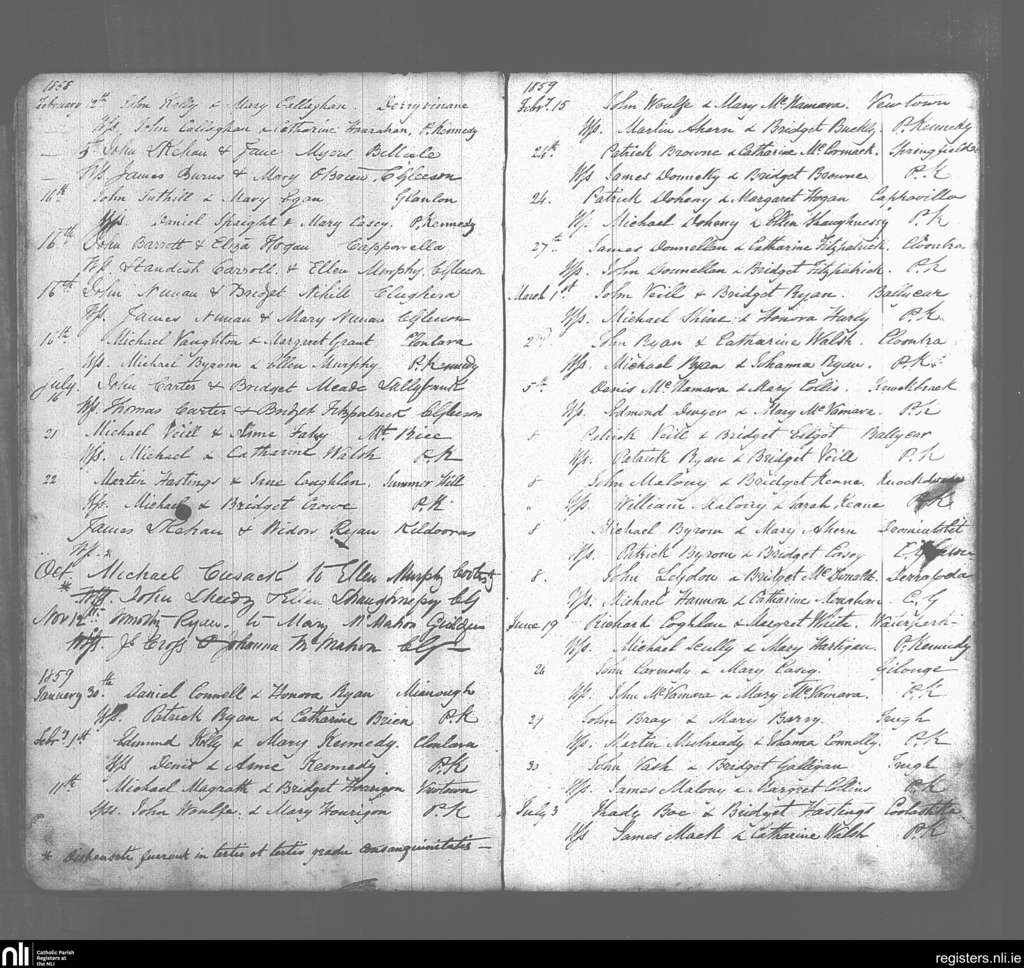 1858
February 12th John Kelly & Mary Callaghan. Derryvinane
Wps. John Callaghan & Catharine Hanrahan, P. Kennedy
5th John Mehan & Jane Myers
Wps James Burns & Mary O'Brien CGleeson
16th John Tuthill & Mary Egan Glanlon
Wps. Daniel Speight & Mary Casey. P. Kennedy
16th John Barrott & Eliza Hogan Cappavella
Wp. Standish Carroll & Ellen Murphy. CGleeson
16th John Nunan & Bridget Nihill Clughera
Wp. James Nunan & Mary Nunan CGleeson
16th Michael Vaughton & Margaret Grant Clonlara
Wps. Michael Byrom & Ellen Murphy P. Kennedy
July 16 John Carter & Bridget Meade
Wps. Thomas Carter & Bridget Fitzpatrick CGleeson
21 Michael Neill & Anne Fahy Mt. Rice
Wps. Michael & Catharine Walsh P.K
22 Martin Hastings & Jane Loughlin. Summer Hill
Wps. Michael & Bridget Crowe P.K
James Mehan & Widow Ryan Kildooras
Wp. &
Oct Michael Cusack to Ellen Murphy
* Wps John Sheedy & Ellen Shaughnessy CG
Nov 12th Timothy Ryan to Mary McMahon
Wps. J. Cross & Johanna McMahon CG
1859
January 30th Daniel Connell & Honora Ryan
Wps. Patrick Ryan & Catharine Brien P.K
Feby 1st Edmund Kelly & Mary Kennedy. Clonlara
Wps Denis & Anne Kennedy. P.K
11th Michael Magrath & Bridget Hourigon Newtown
Wps. John Woulfe. & Mary Hourigon P.K
* in tertio et tertio gradu consanguinitatis
1859
Feby. 15 John Woulfe & Mary McNamara. Newtown
Wps. Martin Ahern & Bridget Buckly P. Kennedy
24th Patrick Browne & Catharine McCormack. Springfield
Wps James Donnelly & Bridget Browne P.K
24. Patrick Doheny & Margaret Hogan Cappavilla
Wp. Michael Doheny & Ellen Shaughnessy P.K
27th James Donnellan & Catharine Fitzpatrick. Cloontra
Wps. John Donnellan & Bridget Fitzpatrick. P.K
March 1st John Neill & Bridget Ryan. Ballycar
Wps. Michael Shine & Honora Hurly P.K
2nd John Ryan & Catharine Walsh. Cloontra
Wps. Michael Ryan & Johanna Ryan. P.K.
5th Denis McNamara & Mary Collis.
Wps. Edmond Dwyer & Mary McNamara. P.K
8 Patrick Neill & Bridget Ballycar
Wps. Patrick Ryan & Bridget Neill P.K
8 John Malony & Bridget Keane.
" Wps. William Malony & Sarah Keane P.K
8 Michael Byrom & Mary Ahern
Wps. Patrick Byrom & Bridget Casey
8. John Leydon & Bridget McDonald.
Wps. Michael Hannon & Catharine C.G
June 19 Richard Coghlan & Margret White.
Wps. Michael Scully & Mary Hartigan. P. Kennedy
26 John Carmody & Mary Casey Gilouge
Wps. John McNamara & Mary McNamara. P.K
29 John Bray & Mary Barry. Trugh
Wp. Martin & Johanna Connolly. P.K
30 John Nash & Bridget Galligan Trugh
Wp. James Malony & Margret P.K
July 3 Thady Boe & Bridget Hastings
Wps James Mack & Catharine Walsh P.K
nli
Catholic Parish
Registers at
the NLI
registers.nli.ie